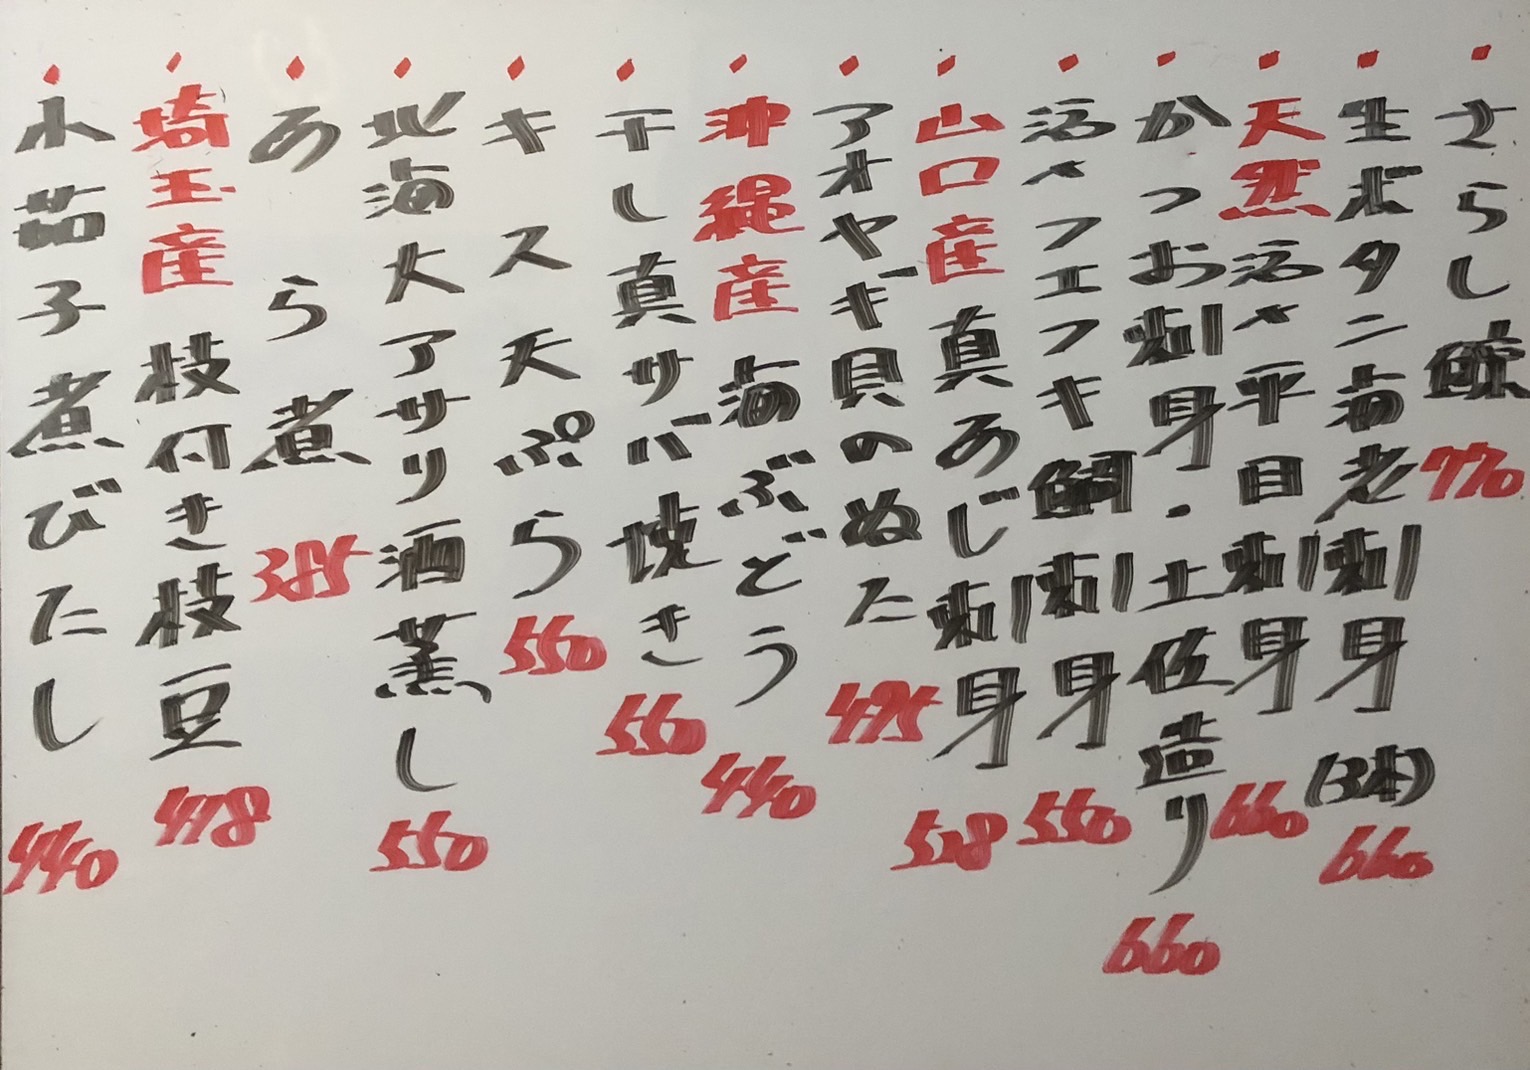 さらし鯨 770
生ボタン海老刺身(3本) 660
天然活〆平目刺身 660
かつお刺身・土佐造り 660
活〆フエフキ鯛刺身 550
山口産真あじ刺身 528
アオヤギ貝のぬた 495
沖縄産海ぶどう 440
干し真サバ焼き 550
キス天ぷら 550
北海大アサリ酒蒸し 550
あら煮 385
埼玉産枝付き枝豆 478
小茄子煮びたし 440